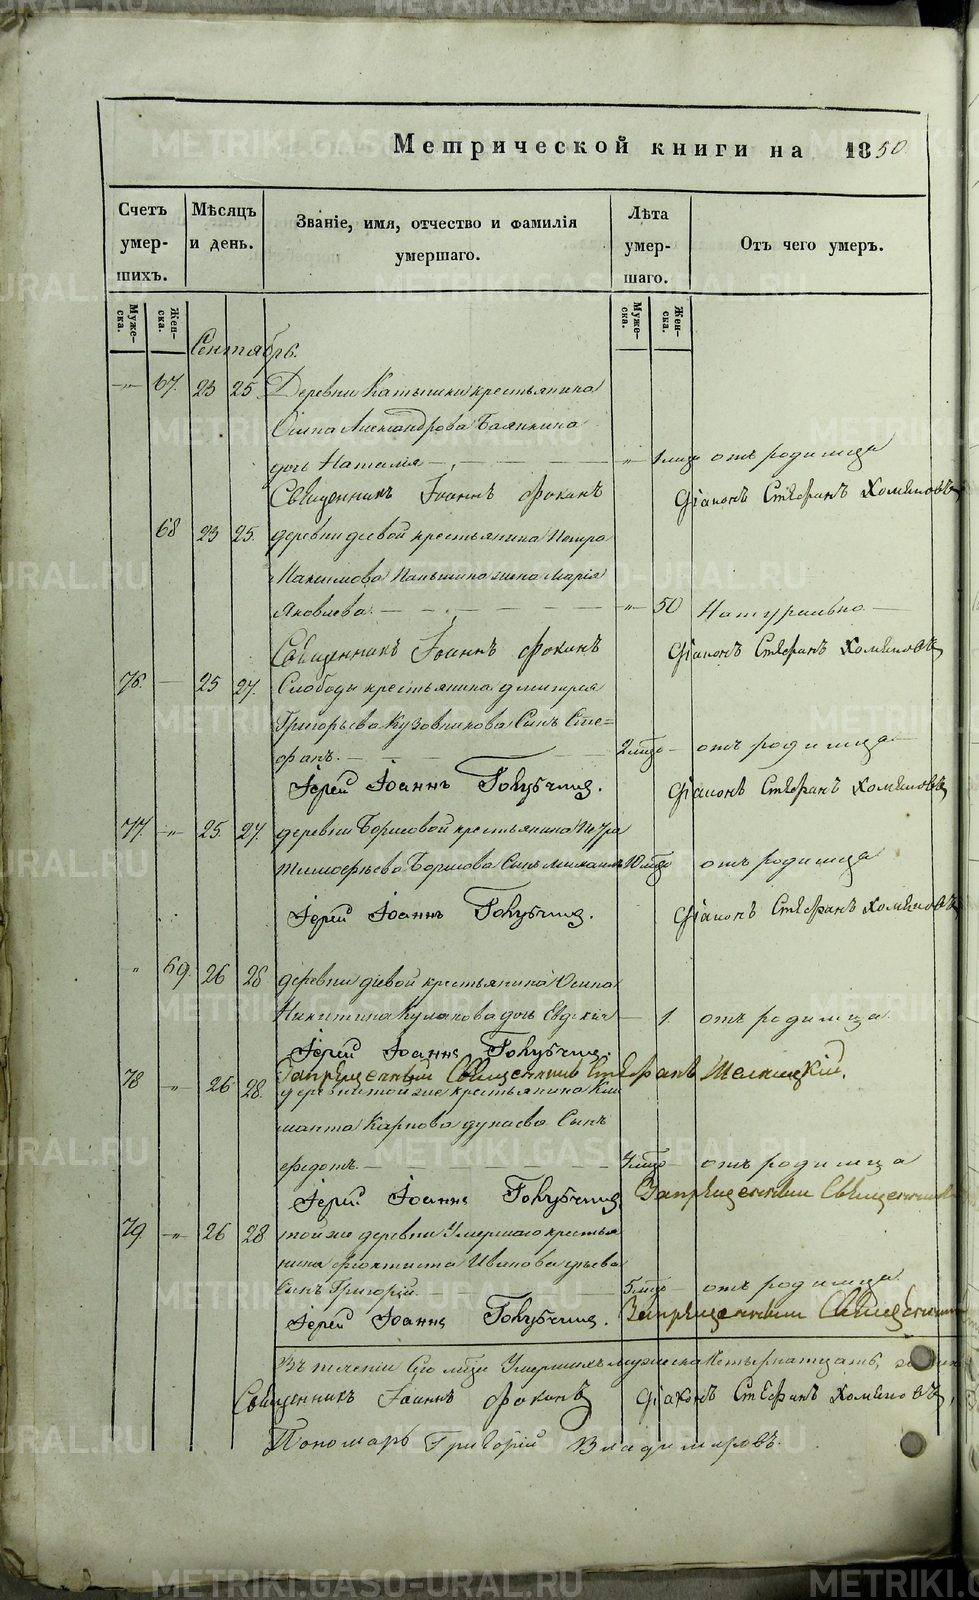 Метрической книги на 1850.
Счетъ умершихъ.
Мѣсяцъ и день.
Званіе, имя, отчество и фамилія умершаго.
Лѣта умершаго.
Отъ чего умеръ.
Мужеска.
Женска.
Мужеска.
Женска.
Сентябрь.
— 67. 23 25 Деревни крестьянина
Осипа Александрова Балякина
дочь Наталія — „ 1 отъ родимца
Священникъ Іоаннъ Фокинъ Діаконъ Стефанъ Хомяковъ
68 23 25. деревни деевой крестьянина Петра
Максимова жена Марія
Яковлева. — „ 50 Натурально —
Священникъ Іоаннъ Фокинъ Діаконъ Стефанъ Хомяковъ
76. — 25 27. Слободы крестьянина Дмитрия
Григорьева Кузовникова Сынъ Сте=
фанъ. — 2 мѣс — отъ родимца —
Іерей Іоаннъ Голубчиц. Діаконъ Стефанъ Хомяковъ
77. „ 25. 27. деревни Борисовой крестьянина Петра
Тимофѣева Борисова Сынъ Михаилъ 10 мѣс отъ родимца
Іерей Іоаннъ Голубчиц. Діаконъ Стефанъ Хомяковъ
„ 69. 26 28 деревни деевой крестьянина Осипа
Никитина Кулакова дочь Евдокія — 1. отъ родимца
Іерей Іоаннъ Голубчиц.
Запрещенный Священникъ Стефанъ
78 „ 26 28. деревни той же крестьянина Кли
манта Карпова дунаева Сынъ
федотъ. — мѣс — отъ родимца
Іерей Іоаннъ Голубчиц. Запрещенный Священникъ
79. „ 26 28 той же деревни Умершаго крестья
нина феоктиста Иванова
Сынъ Григорій. 5 мѣс отъ родимца
Іерей Іоаннъ Голубчиц. Запрещенный Священникъ
Въ теченіи Сего мѣсяца Умершихъ мужеска
Священникъ Іоаннъ Фокинъ Діаконъ Стефанъ Хомяковъ,
Пономарь Григорій Владимировъ.
METRIKI.GASO-URAL.RU